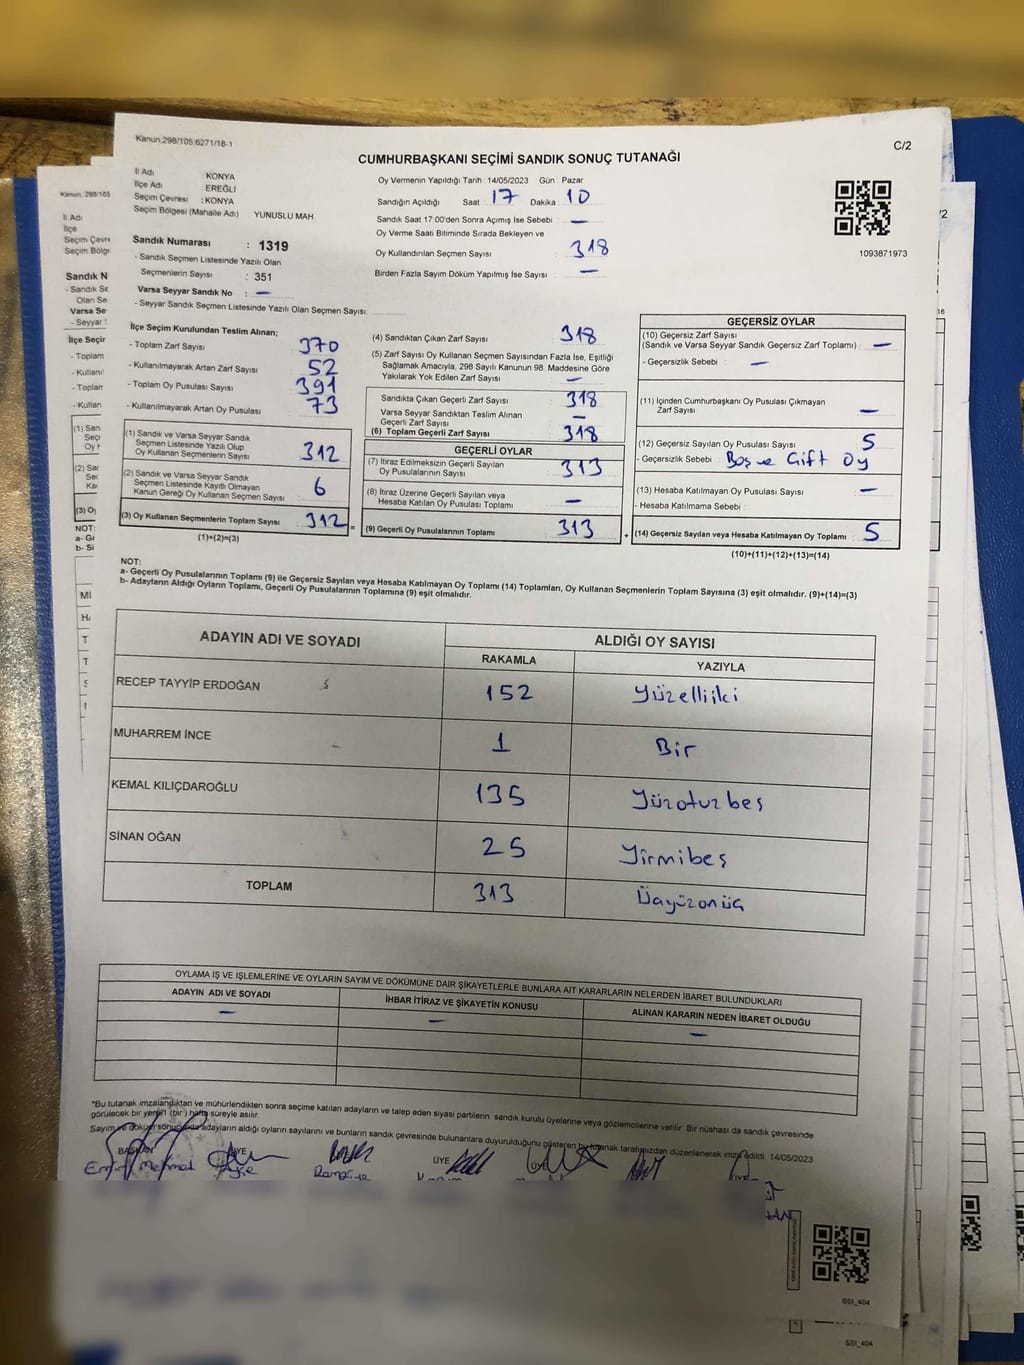 Kanun.298/105;6271/18-1
C/2
CUMHURBAŞKANI SEÇİMİ SANDIK SONUÇ TUTANAĞI
İl Adı : KONYA
İlçe Adı : EREĞLİ
Seçim Çevresi : KONYA
Seçim Bölgesi (Mahalle Adı) YUNUSLU MAH
Sandık Numarası : 1319
- Sandık Seçmen Listesinde Yazılı Olan
Seçmenlerin Sayısı : 351
Varsa Seyyar Sandık No : —
- Seyyar Sandık Seçmen Listesinde Yazılı Olan Seçmen Sayısı:
Oy Vermenin Yapıldığı Tarih : 14/05/2023 Gün : Pazar
Sandığın Açıldığı Saat 17 Dakika 10
Sandık Saat 17:00'den Sonra Açımış İse Sebebi —
Oy Verme Saati Bitiminde Sırada Bekleyen ve
Oy Kullandırılan Seçmen Sayısı 318
Birden Fazla Sayım Döküm Yapılmış İse Sayısı —
1093871973
İlçe Seçim Kurulundan Teslim Alınan;
- Toplam Zarf Sayısı 370
- Kullanılmayarak Artan Zarf Sayısı 52
- Toplam Oy Pusulası Sayısı 391
- Kullanılmayarak Artan Oy Pusulası 73
(1) Sandık ve Varsa Seyyar Sandık
Seçmen Listesinde Yazılı Olup
Oy Kullanan Seçmenlerin Sayısı 312
(2) Sandık ve Varsa Seyyar Sandık
Seçmen Listesinde Kayıtlı Olmayan
Kanun Gereği Oy Kullanan Seçmen Sayısı 6
(3) Oy Kullanan Seçmenlerin Toplam Sayısı 312
(1)+(2)=(3)
=
(4) Sandıktan Çıkan Zarf Sayısı 318
(5) Zarf Sayısı Oy Kullanan Seçmen Sayısından Fazla İse, Eşitliği
Sağlamak Amacıyla, 298 Sayılı Kanunun 98. Maddesine Göre
Yakılarak Yok Edilen Zarf Sayısı —
Sandıkta Çıkan Geçerli Zarf Sayısı 318
Varsa Seyyar Sandıktan Teslim Alınan
Geçerli Zarf Sayısı —
(6) Toplam Geçerli Zarf Sayısı 318
GEÇERLİ OYLAR
(7) İtiraz Edilmeksizin Geçerli Sayılan
Oy Pusulalarının Sayısı 313
(8) İtiraz Üzerine Geçerli Sayılan veya
Hesaba Katılan Oy Pusulası Toplamı —
(9) Geçerli Oy Pusulalarının Toplamı 313
+
GEÇERSİZ OYLAR
(10) Geçersiz Zarf Sayısı
(Sandık ve Varsa Seyyar Sandık Geçersiz Zarf Toplamı) : —
- Geçersizlik Sebebi : —
(11) İçinden Cumhurbaşkanı Oy Pusulası Çıkmayan
Zarf Sayısı —
(12) Geçersiz Sayılan Oy Pusulası Sayısı 5
- Geçersizlik Sebebi : Boş ve Çift Oy
(13) Hesaba Katılmayan Oy Pusulası Sayısı —
- Hesaba Katılmama Sebebi :
(14) Geçersiz Sayılan veya Hesaba Katılmayan Oy Toplamı : 5
(10)+(11)+(12)+(13)=(14)
NOT:
a- Geçerli Oy Pusulalarının Toplamı (9) ile Geçersiz Sayılan veya Hesaba Katılmayan Oy Toplamı (14) Toplamları, Oy Kullanan Seçmenlerin Toplam Sayısına (3) eşit olmalıdır. (9)+(14)=(3)
b- Adayların Aldığı Oyların Toplamı, Geçerli Oy Pusulalarının Toplamına (9) eşit olmalıdır.
ADAYIN ADI VE SOYADI
ALDIĞI OY SAYISI
RAKAMLA YAZIYLA
RECEP TAYYİP ERDOĞAN 152 Yüzelliiki
MUHARREM İNCE 1 Bir
KEMAL KILIÇDAROĞLU 135 Yüzotuzbeş
SİNAN OĞAN 25 Yirmibeş
TOPLAM 313 Üçyüzonüç
OYLAMA İŞ VE İŞLEMLERİNE VE OYLARIN SAYIM VE DÖKÜMÜNE DAİR ŞİKAYETLERLE BUNLARA AİT KARARLARIN NELERDEN İBARET BULUNDUKLARI
ADAYIN ADI VE SOYADI İHBAR İTİRAZ VE ŞİKAYETİN KONUSU ALINAN KARARIN NEDEN İBARET OLDUĞU
— — —
*Bu tutanak imzalandıktan ve mühürlendikten sonra seçime katılan adayların ve talep eden siyasi partilerin sandık kurulu üyelerine veya gözlemcilerine verilir. Bir nüshası da sandık çevresinde
görülecek bir yere 1 (bir) hafta süreyle asılır.
Sayım ve döküm sonucunda adayların aldığı oyların sayılarını ve bunların sandık çevresinde bulunanlara duyurulduğunu gösteren bu tutanak tarafımızdan düzenlenerek imza edildi. 14/05/2023
BAŞKAN ÜYE ÜYE ÜYE
SSI_404
SSI_404